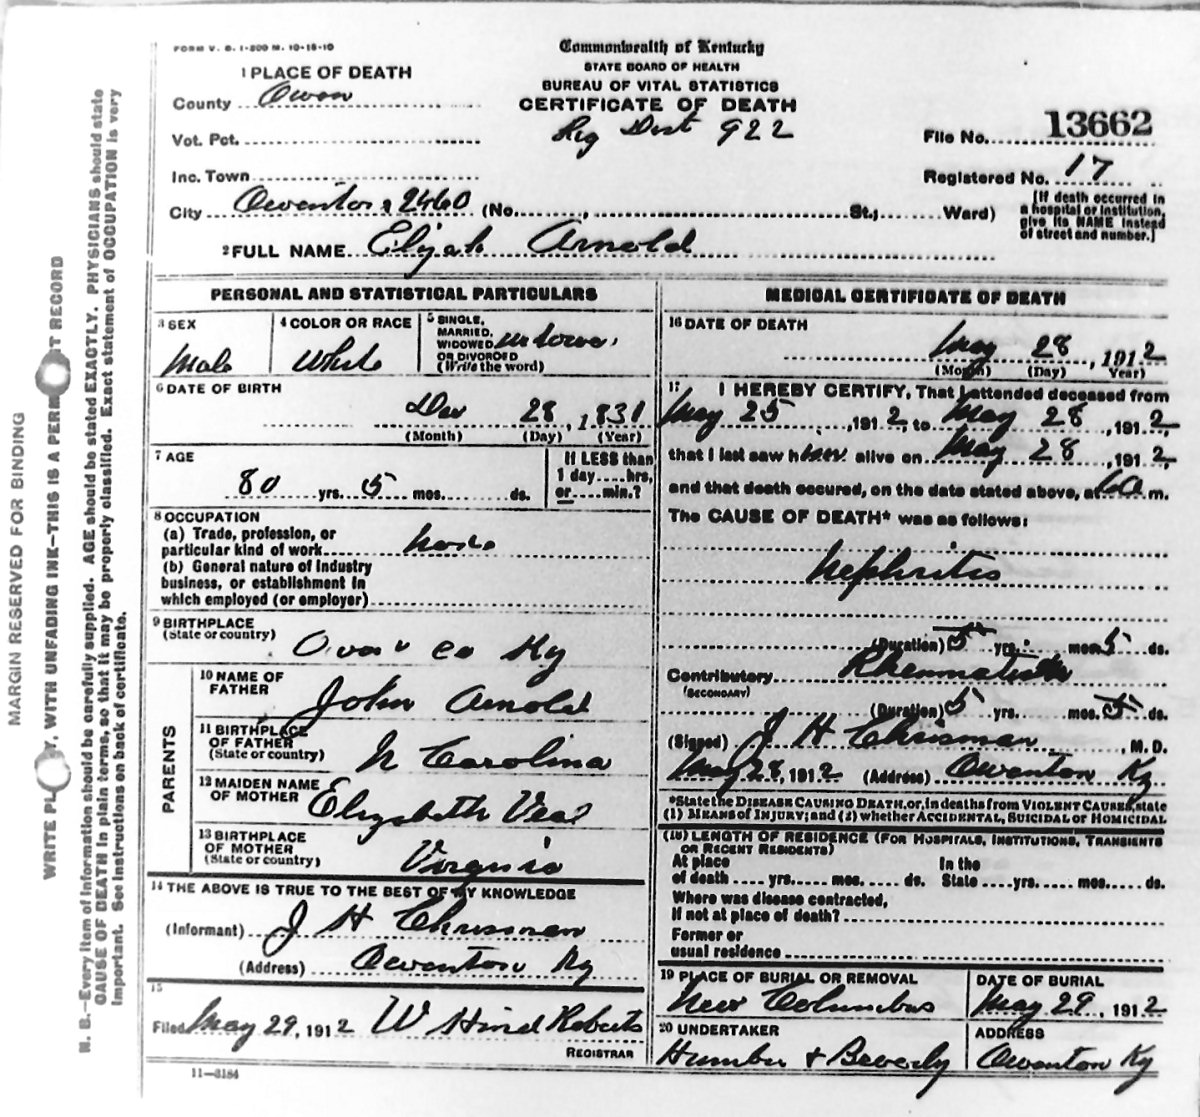 FORM V. S. 1-200 M. 10-18-10
Commonwealth of Kentucky
STATE BOARD OF HEALTH
BUREAU OF VITAL STATISTICS
CERTIFICATE OF DEATH
Reg Dist 922
1 PLACE OF DEATH
County Owen
Vot. Pct.
Inc. Town
City Owenton 2460 (No. , St.; Ward)
File No. 13662
Registered No. 17
[If death occurred in
a hospital or institution,
give its NAME instead
of street and number.]
2 FULL NAME Elijah Arnold
PERSONAL AND STATISTICAL PARTICULARS
3 SEX
Male
4 COLOR OR RACE
White
5 SINGLE,
MARRIED,
WIDOWED
OR DIVORCED
(Write the word)
widower
6 DATE OF BIRTH
Dec 28, 1831
(Month) (Day) (Year)
7 AGE
80 yrs. 5 mos. ds.
If LESS than
1 day....hrs.
or....min.?
8 OCCUPATION
(a) Trade, profession, or
particular kind of work None
(b) General nature of industry
business, or establishment in
which employed (or employer)
9 BIRTHPLACE
(State or country)
Owen co Ky
PARENTS
10 NAME OF
FATHER
John Arnold
11 BIRTHPLACE
OF FATHER
(State or country)
N Carolina
12 MAIDEN NAME
OF MOTHER
Elizabeth Veal
13 BIRTHPLACE
OF MOTHER
(State or country)
Virginia
14 THE ABOVE IS TRUE TO THE BEST OF MY KNOWLEDGE
(Informant) J H Chrisman
(Address) Owenton Ky
15
Filed May 29, 1912 W Hind Roberts
REGISTRAR
11-3184
MEDICAL CERTIFICATE OF DEATH
16 DATE OF DEATH
May 28, 1912
(Month) (Day) Year)
17 I HEREBY CERTIFY, That I attended deceased from
May 25, 1912, to May 28, 1912,
that I last saw him alive on May 28, 1912,
and that death occured, on the date stated above, at 6a m.
The CAUSE OF DEATH* was as follows:
Nephritis
(Duration) 5 yrs. mos. 5 ds.
Contributory Rheumatism
(SECONDARY)
(Duration) 5 yrs. mos. 5 ds.
(Signed) J H Chrisman, M. D.
May 28, 1912 (Address) Owenton Ky
*State the DISEASE CAUSING DEATH, or, in deaths from VIOLENT CAUSES, state
(1) MEANS OF INJURY; and (2) whether ACCIDENTAL, SUICIDAL OR HOMICIDAL
(18) LENGTH OF RESIDENCE (FOR HOSPITALS, INSTITUTIONS, TRANSIENTS
OR RECENT RESIDENTS)
At place In the
of death .... yrs..... mos..... ds. State ....yrs..... mos.....ds.
Where was disease contracted,
If not at place of death?
Former or
usual residence
19 PLACE OF BURIAL OR REMOVAL
New Columbus
DATE OF BURIAL
May 29, 1912
20 UNDERTAKER
& Beverly
ADDRESS
Owenton Ky
MARGIN RESERVED FOR BINDING
WRITE WITH UNFADING INK—THIS IS A RECORD
N. B.—Every item of information should be carefully supplied. AGE should be stated EXACTLY. PHYSICIANS should state
CAUSE OF DEATH in plain terms, so that it may be properly classified. Exact statement of OCCUPATION is very
important. See instructions on back of certificate.